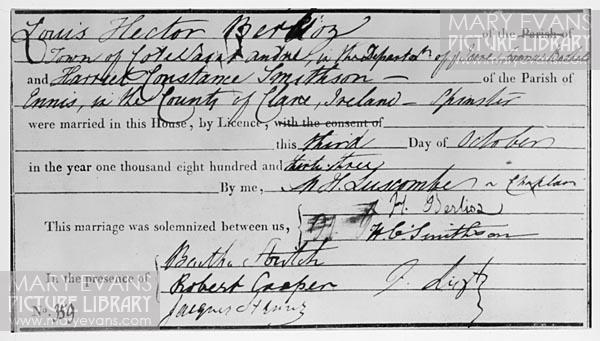 Louis Hector Berlioz of the Parish of
Town of Cote Saint André, in the Departt. of
and Harriet Constance Smithson – of the Parish of
Ennis, in the County of Clare, Ireland – Spinster
were married in this House, by Licence, with the consent of
this third Day of October
in the year one thousand eight hundred and thirty three
By me, M H Luscombe Chaplain
This marriage was solemnized between us, { H. Berlioz
H C Smithson
In the presence of { Bertha Stritch
Robert Cooper F. Liszt }
Jacques Henry
No. 39
MARY EVANS
PICTURE LIBRARY
MARY EVANS
PICTURE LIBRARY
www.maryevans.com
MARY EVANS
PICTURE LIBRARY
www.maryevans.com